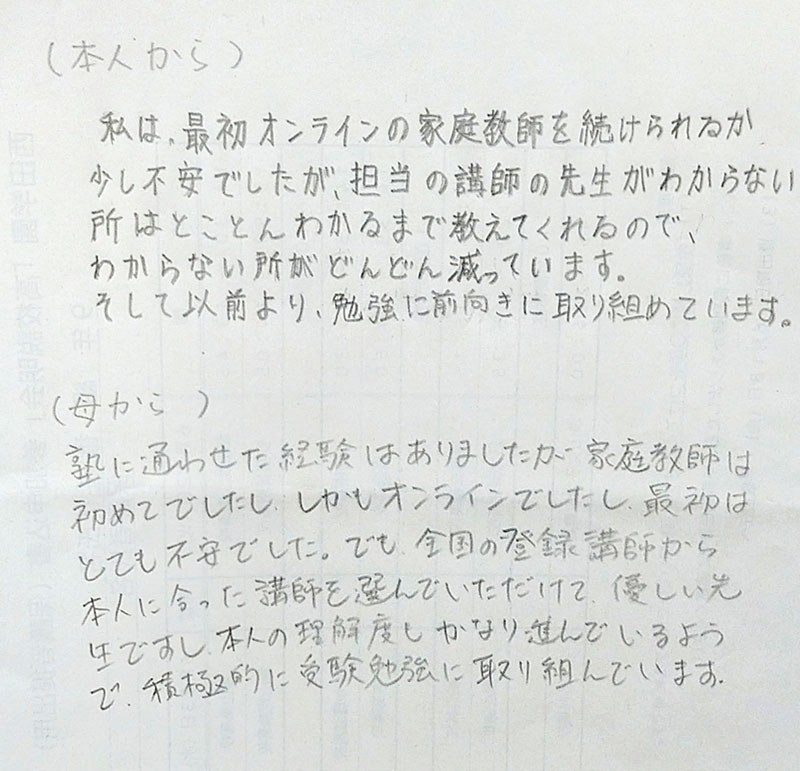 (本人から)
私は、最初オンラインの家庭教師を続けられるか
少し不安でしたが、担当の講師の先生がわからない
所はとことんわかるまで教えてくれるので、
わからない所がどんどん減っています。
そして以前より、勉強に前向きに取り組めています。
(母から)
塾に通わせた経験はありましたが家庭教師は
初めてでしたし、しかもオンラインでしたし、最初は
とても不安でした。でも、全国の登録講師から
本人に合った講師を選んでいただけて、優しい先
生ですし、本人の理解度もかなり進んでいるよう
で、積極的に受験勉強に取り組んでいます。